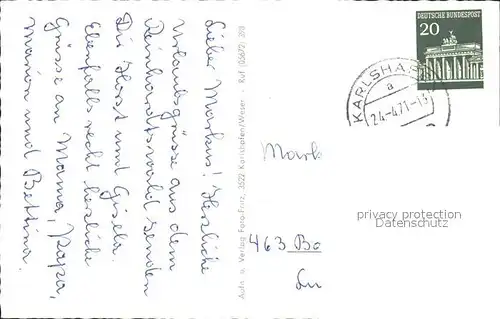 Lieber Markus! Herzliche
Urlaubsgrüsse aus dem
Reinhardtswald senden
Dir Horst und Gisela.
Ebenfalls recht herzliche
Grüsse an Mama, Papa,
Marion und Bettina.
Aufn. u. Verlag Foto-Franz, 3522 Karlshafen/Weser - Ruf (05672) 319
DEUTSCHE BUNDESPOST
20
KARLSHAF
a
24-4.71-13
Mark
463 Bo
privacy protection
Datenschutz